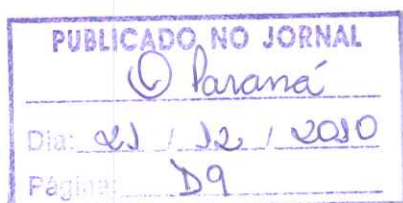 PUBLICADO NO JORNAL
O Paraná
Dia: 21 / 12 / 2010
Página: D9